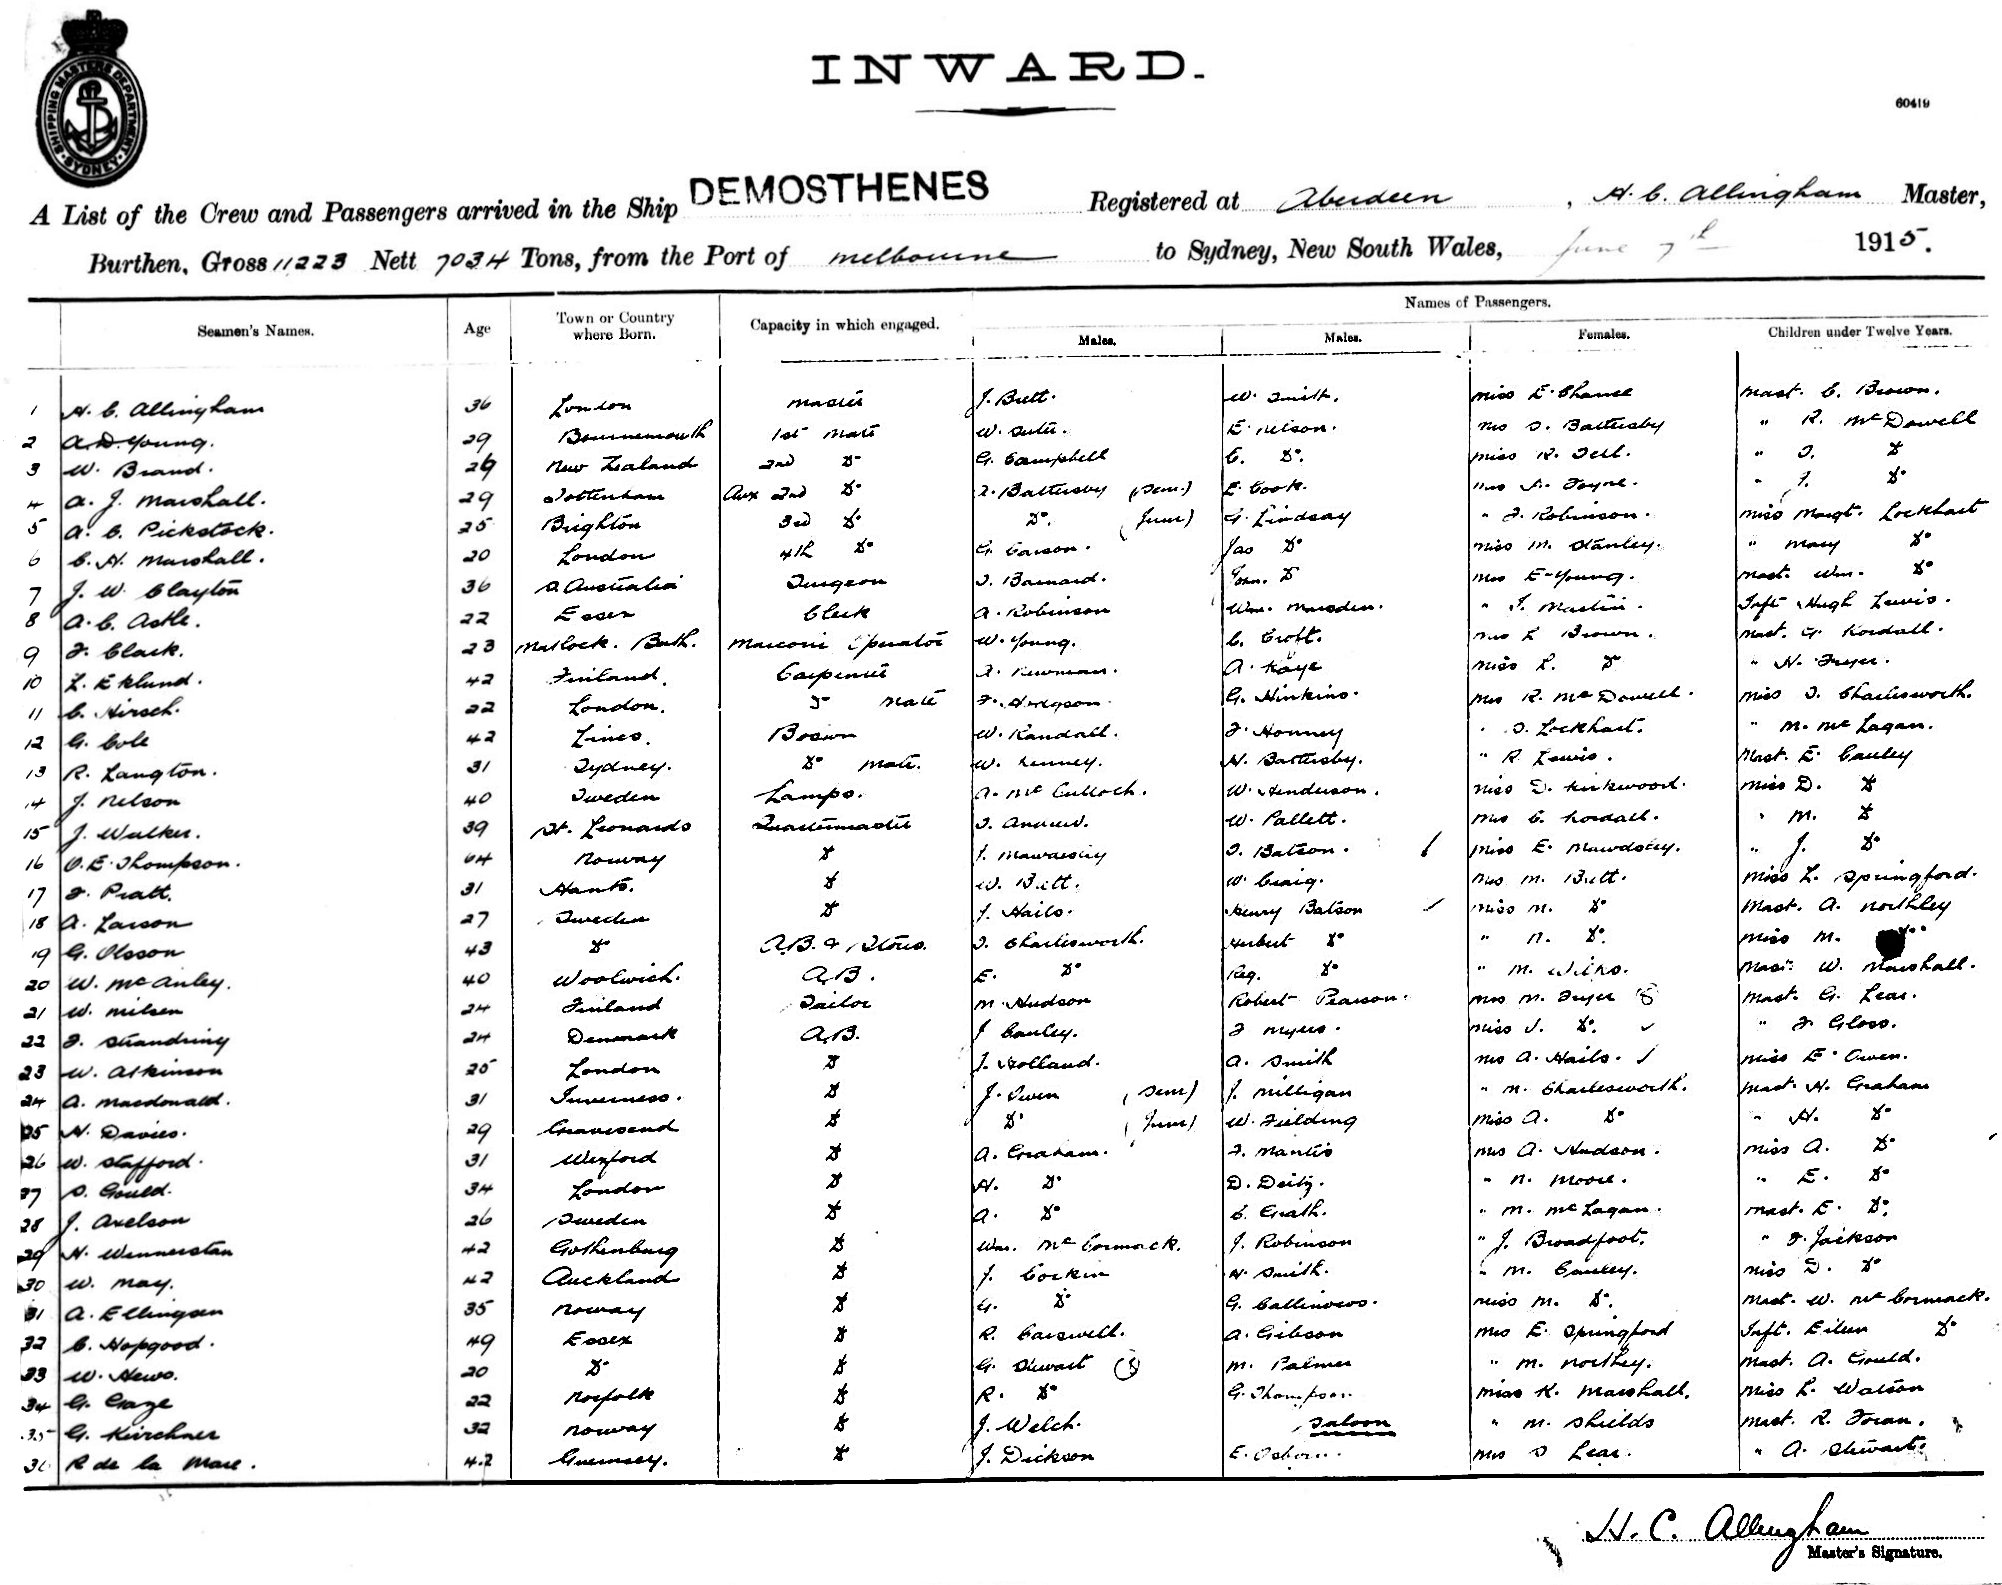 SHIPPING MASTERS DEPARTMENT
SYDNEY
INWARD.
60419
A List of the Crew and Passengers arrived in the Ship DEMOSTHENES Registered at Aberdeen, H. C. Allingham Master,
Burthen, Gross 11223 Nett 7034 Tons, from the Port of Melbourne to Sydney, New South Wales, June 7th 1915.
Names of Passengers.
Seamen's Names. Age Town or Country where Born. Capacity in which engaged. Males. Males. Females. Children under Twelve Years.
1 H. C. Allingham 36 London Master J. Butt. W. Smith. Miss E. Chance Mast. C. Brown.
2 A. D. Young. 29 Bournemouth 1st Mate W. Suter. E. Nelson. Mrs S. Battersby " R. McDowell
3 W. Brand. 26 New Zealand 2nd Do G. Campbell C. Do. Miss R. Tell. " S. Do
4 A. J. Marshall. 29 Tottenham Aux 2nd Do Battersby (Senr) E. Cook. Mrs Foyne. " J. Do
5 A. C. Pickstock. 25 Brighton 3rd Do Do. (Junr) G. Lindsay " F. Robinson. Miss Margt. Lockhart
6 C. H. Marshall. 20 London 4th Do G. Carson. Jas Do Miss M. Stanley. " Mary Do
7 J. W. Clayton 36 S. Australia Surgeon S. Barnard. John. Do Mrs E. Young. Mast. Wm. Do
8 A. C. Astle. 22 Essex Clerk A. Robinson Wm. Marsden. " J. Martin. Inft Hugh Lewis.
9 F. Clark. 23 Matlock. Bath. Marconi Operator W. Young. C. Croft. Mrs L. Brown. Mast. G. Kordall.
10 L. Eklund. 42 Finland. Carpenter Newman. A. Kaye Miss L. Do " H. Fryer.
11 C. Hirsch. 22 London. Do Mate F. Hodgson. G. Hinkins. Mrs R. McDowell. Miss S. Charlesworth.
12 G. Cole 42 Lincs. Bosun W. Randall. F. Honney " S. Lockhart. " M. McLagan.
13 R. Langton. 31 Sydney. Do Mate. W. Kenney. H. Battersby. " R. Lewis. Mast. E. Cauley
14 J. Nelson 40 Sweden Lamps. A. McCulloch. W. Henderson. Miss D. Kirkwood. Miss D. Do
15 J. Walker. 39 St. Leonards Quartermaster S. Andrew. W. Pallett. Mrs C. Kordall. " M. Do
16 O. E. Thompson. 64 Norway Do J. Mawdsley S. Batson. Miss E. Mawdsley. " J. Do
17 F. Pratt. 31 Hants. Do W. Butt. W. Craig. Mrs M. Butt. Miss L. Springford.
18 A. Larson 27 Sweden Do J. Hails. Henry Batson Miss M. Do Mast. A. Northley
19 G. Olsson 43 Do A.B. & Stores. S. Charlesworth. Herbert Do " N. Do. Miss M. Do
20 W. McAnley. 40 Woolwich. A.B. E. Do Reg. Do " M. Wilks. Mast. W. Marshall.
21 W. Nilsen 24 Finland Sailor M. Hudson Robert Pearson. Mrs M. Fryer Mast. G. Lear.
22 F. Strandring 24 Denmark A.B. J. Cauley. F. Myers. Miss J. Do. " F. Gloss.
23 W. Atkinson 25 London Do J. Holland. A. Smith Mrs A. Hails. Miss E. Owen.
24 A. Macdonald. 31 Inverness. Do J. Owen (Senr) J. Milligan " N. Charlesworth. Mast. H. Graham
25 H. Davies. 29 Gravesend Do Do (Junr) W. Fielding Miss A. Do " H. Do
26 W. Stafford. 31 Wexford Do A. Graham. F. Mantis Mrs A. Hudson. Miss A. Do
27 S. Gould. 34 London Do H. Do D. Deitz. " N. Moore. " E. Do
28 J. Axelson 26 Sweden Do A. Do C. Grath. " M. McLagan. Mast. E. Do.
29 H. Wennerstan 42 Gothenburg Do Wm. McCormack. J. Robinson " J. Broadfoot. " F. Jackson
30 W. May. 42 Auckland Do J. Corkin H. Smith. " M. Cauley. Miss D. Do
31 A. Ellingsen 35 Norway Do G. Do G. Callinows. Miss M. Do. Mast. W. McCormack.
32 C. Hopgood. 49 Essex Do R. Carswell. A. Gibson Mrs E. Springford Inft. Eileen Do
33 W. Hews. 20 Do Do G. Stewart M. Palmer " M. Northey. Mast. A. Gould.
34 G. Gaze 22 Norfolk Do R. Do G. Thompson. Miss K. Marshall. Miss L. Watson
35 G. Kirchner 32 Norway Do J. Welch. Saloon " M. Shields Mast. R. Foran.
36 R de la Mare. 42 Guernsey. Do J. Dickson E. Osborn. Mrs S Lear. " A. Stewart.
H. C. Allingham
Master's Signature.